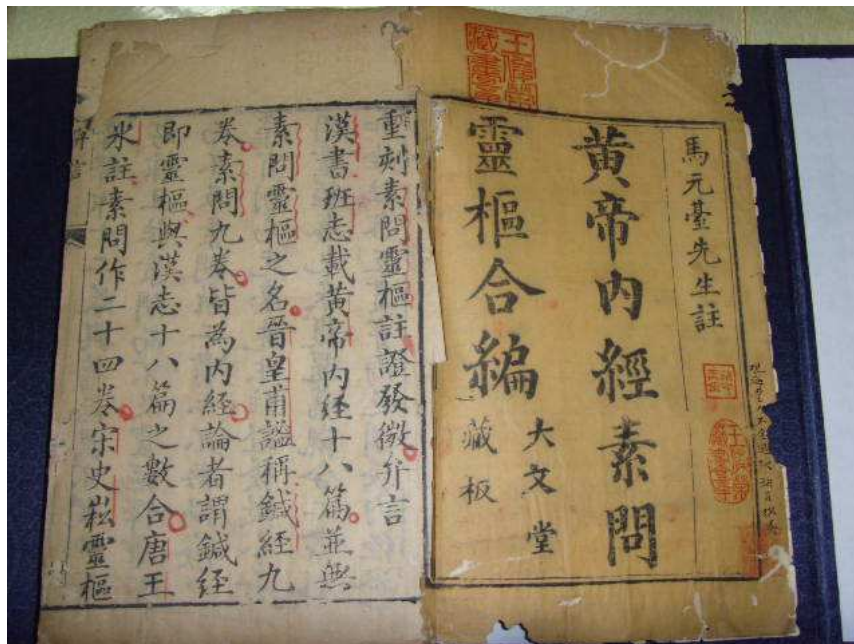 馬元臺先生註
黃帝內經素問
靈樞合編
大文堂
藏板
重刻素問靈樞註證發微弁言
漢書班志載黃帝內经十八篇並無
素問靈樞之名晉皇甫謐稱鍼經九
卷素問九卷皆為內経論者謂鍼経
即靈樞與漢志十八篇之數合唐王
氷註素問作二十四卷宋史崧靈樞
弁言